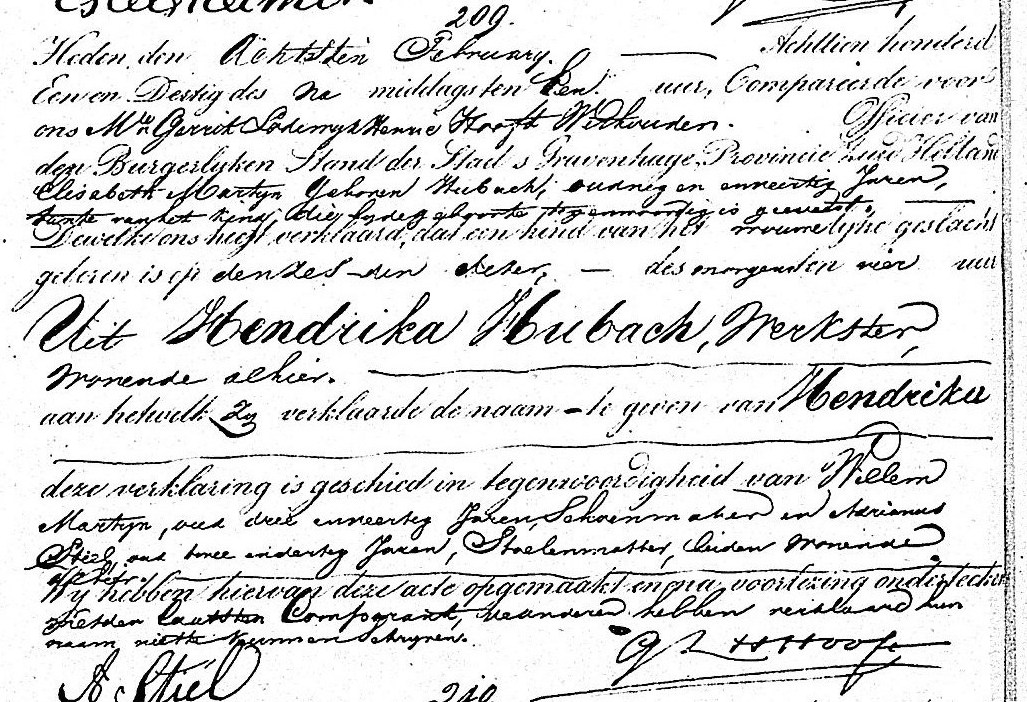 209.
Heden den Achtsten February. Achttien honderd
Een en Dertig des Na middags ten Een uur, Compareerde voor
ons Mr. Gerrit Lodewyk Henrie Hooft Officier van
den Burgerlyken Stand der Stad s Gravenhage, Provincie Zuid Holland
Elisabeth Martyn Geboren Hubach, oud neg en enveertig Jaren,
tante van het Kind, die by de geboorte tegenwoordig is geweest,
Dewelke ons heeft verklaard, dat een kind van het vrouwelyke geslacht
geboren is op den zesden dezer, des morgens ten vier uur
Uit Hendrika Hubach, Werkster,
Wonende alhier.
aan hetwelk Zy verklaarde de naam te geven van Hendrika
deze verklaring is geschied in tegenwoordigheid van Willem
Martyn, oud drie enveertig Jaren, Schoenmaker en Adrianus
Stiel, oud twee endertig Jaren, Stoelenmatter, beiden Wonende
alhier.
Wy hebben hiervan deze acte opgemaakt en na voorlezing onderteekend
met den laatsten Comparant, de anderen hebben verklaard hun
naam niette kunnen schryven.
G L H Hooft
A. Stiel
210.